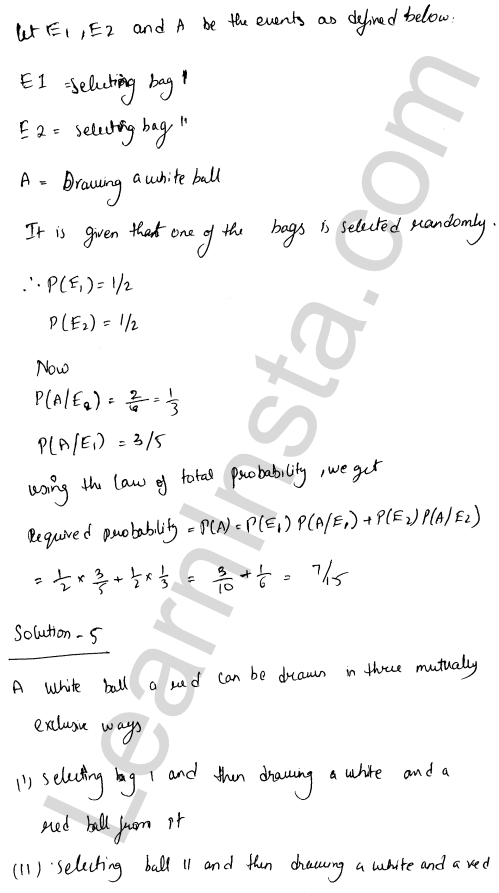 let E1, E2 and A be the events as defined below:
E1 = selecting bag I
E2 = selecting bag II
A = Drawing a white ball
It is given that one of the bags is selected randomly.
∴ P(E₁) = 1/2
P(E₂) = 1/2
Now
P(A/E₂) = 2/6 = 1/3
P(A/E₁) = 3/5
using the law of total probability, we get
Required probability = P(A) = P(E₁) P(A/E₁) + P(E₂) P(A/E₂)
= 1/2 × 3/5 + 1/2 × 1/3 = 3/10 + 1/6 = 7/15
Solution - 5
A white ball a red can be drawn in three mutually
exclusive ways
(I) selecting bag I and then drawing a white and a
red ball from it
(II) selecting ball II and then drawing a white and a red
LearnInsta.com